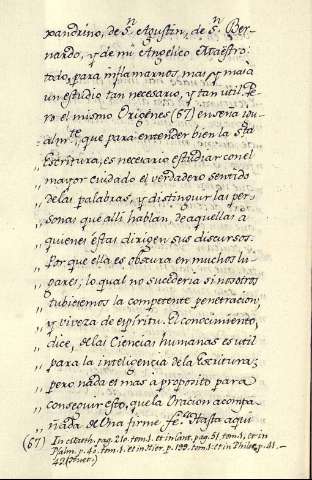 xandrino, de Sⁿ. Agustin, de Sⁿ. Ber-
nardo, y de mi Angelico Maestro:
todo, para inflamarnos, mas y mas à
un estudio tan necesario, y tan util. Pe-
ro el mismo Origenes (67) enseña igu-
almᵗᵉ, que para entender bien la Sᵗᵃ
„ Escritura, es necesario estudiar con el
„ mayor cuidado el verdadero sentido
„ de las palabras, y distinguir las per-
„ sonas que alli hablan, de aquellas à
„ quienes éstas dirigen sus discursos.
„ Por que ella es obscura en muchos lu-
„ gares; lo qual no sucederia si nosotros
„ tubiesemos la competente penetracion,
„ y viveza de espiritu. El conocimiento,
„ dice, de las Ciencias humanas es util
„ para la inteligencia de la Escritura;
„ pero nada es mas a proposito para
„ conseguir esto, que la Oracion acompa-
„ ñada de una firme fe. Hasta aqui
(67) In Math. pag. 210. tom. 1. et in Cant. pag. 51. tom. 1. et in
Psalm. p. 40. tom. 1. et in Hier. p. 199. tom. 1. et in Philoc. p. 41.-
42 (Huet.)